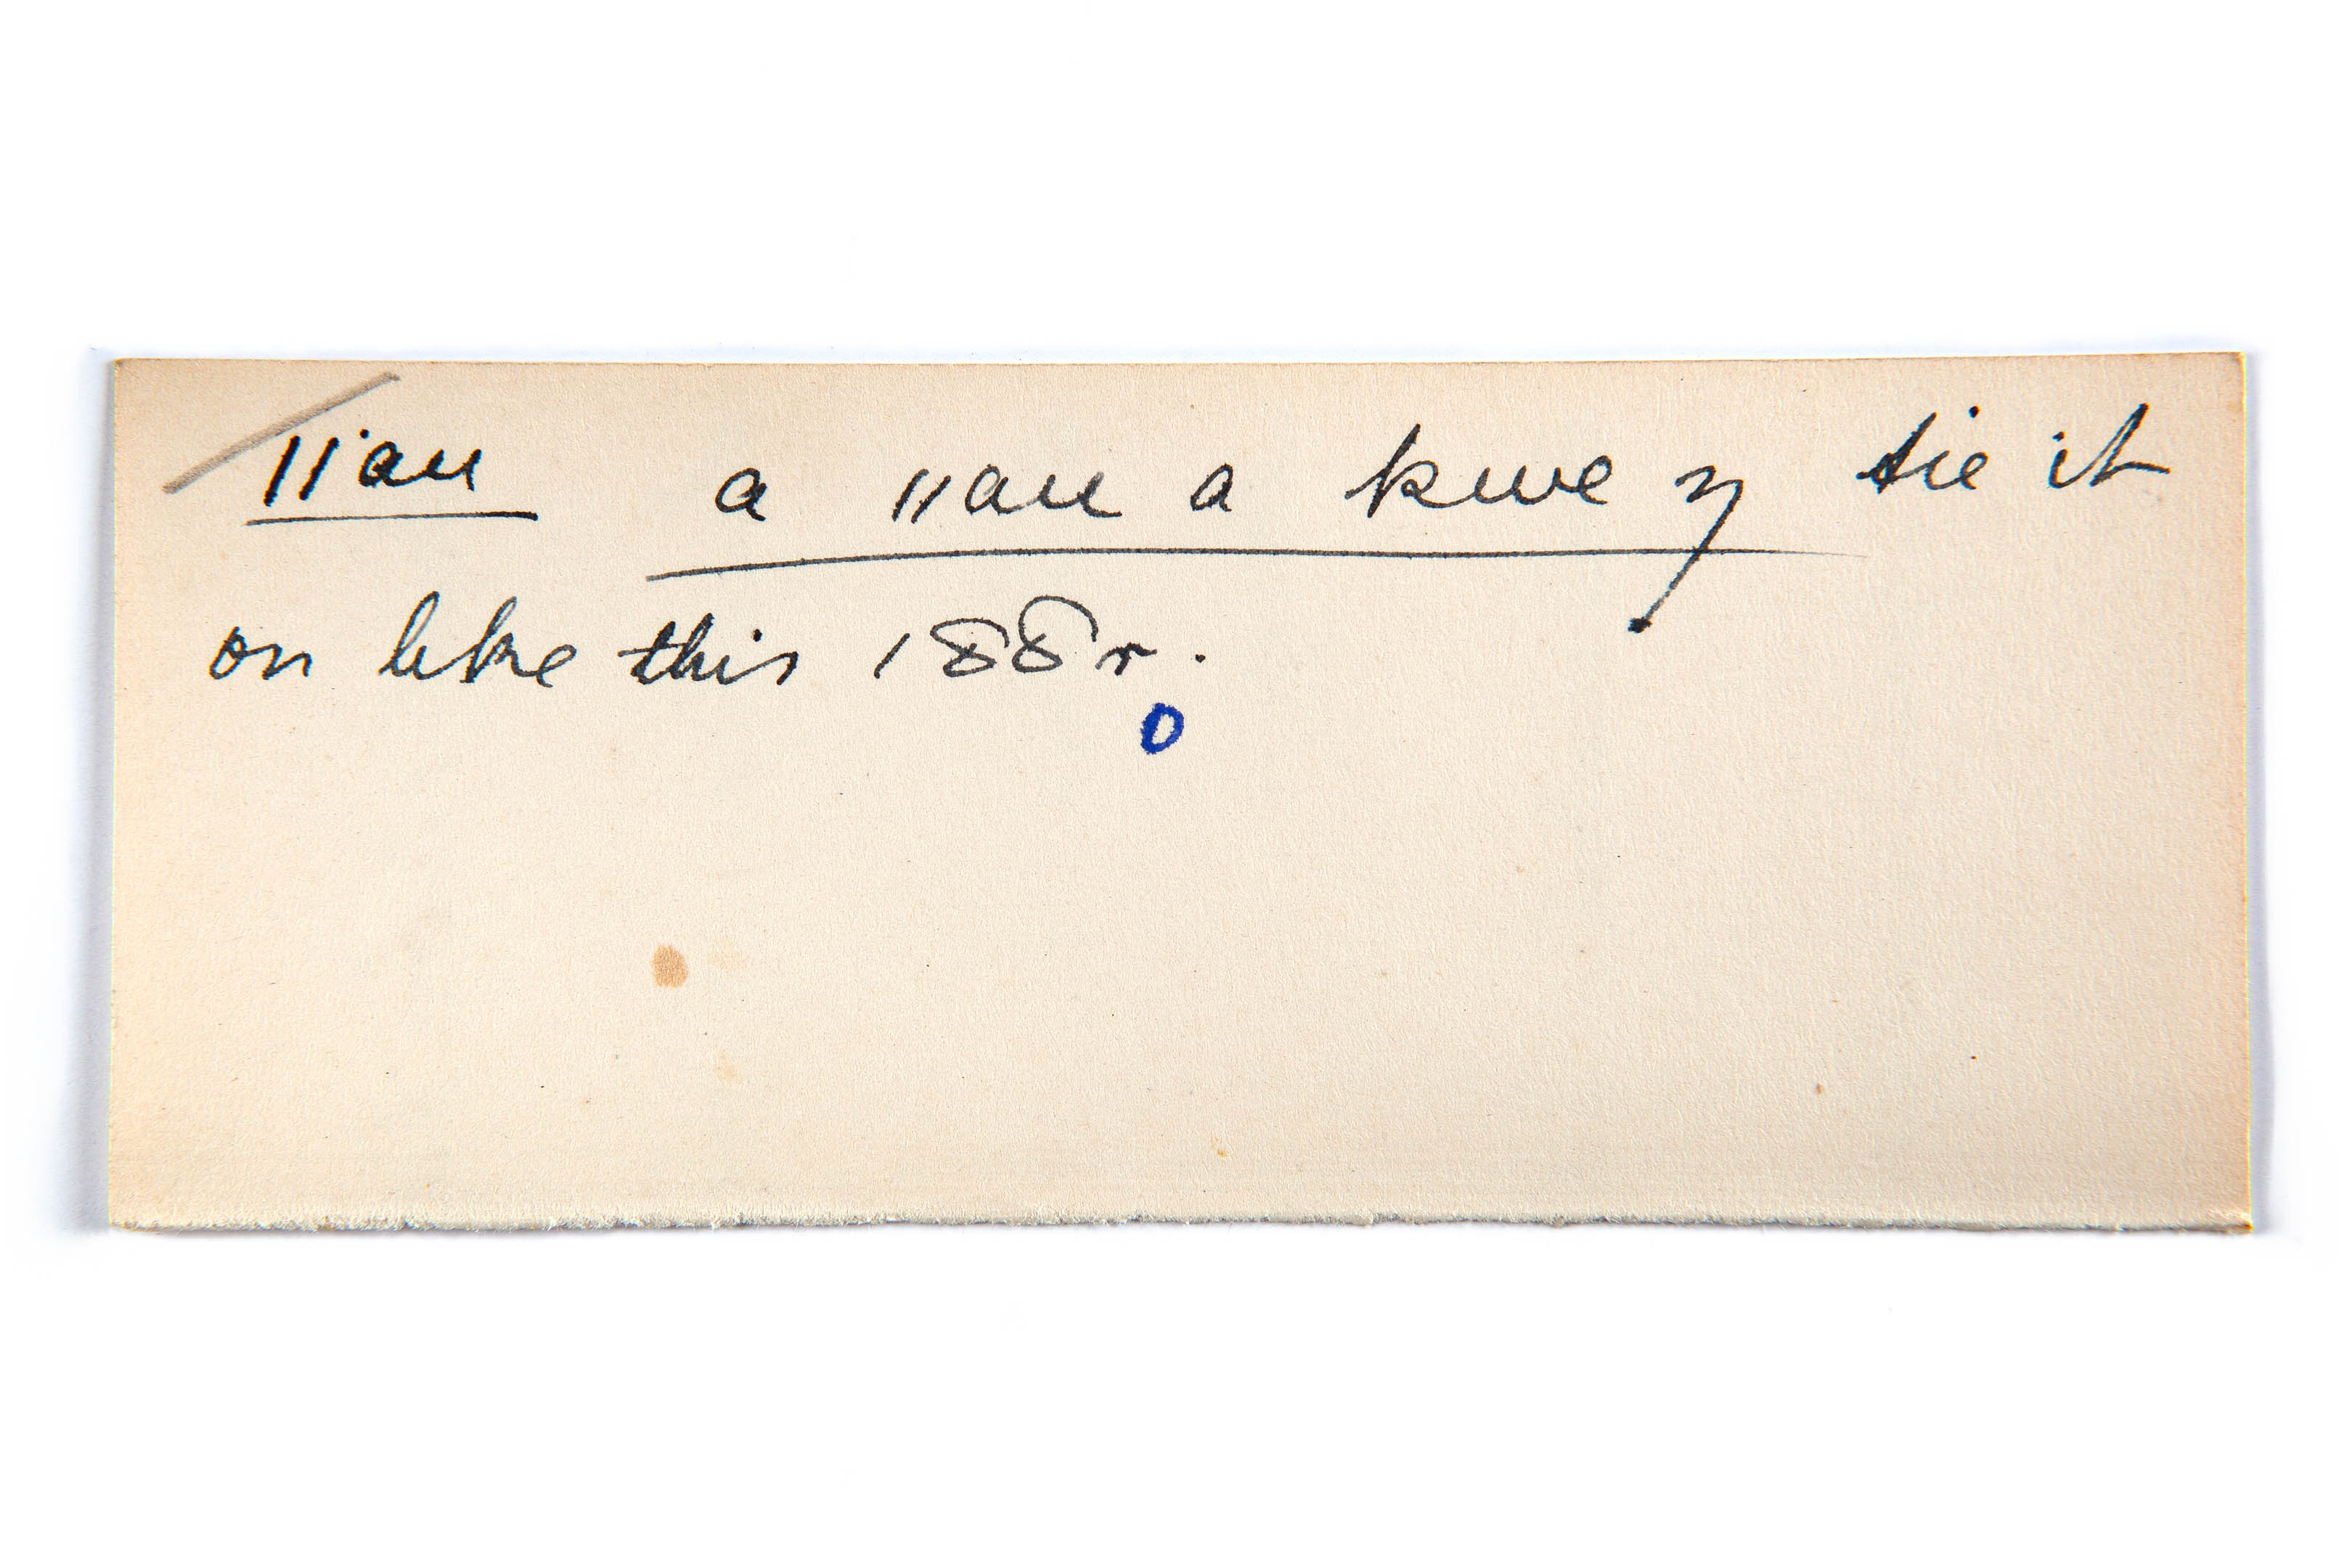 ǁau a ǁau a kwe ŋ tie it
on like this 188r.
0